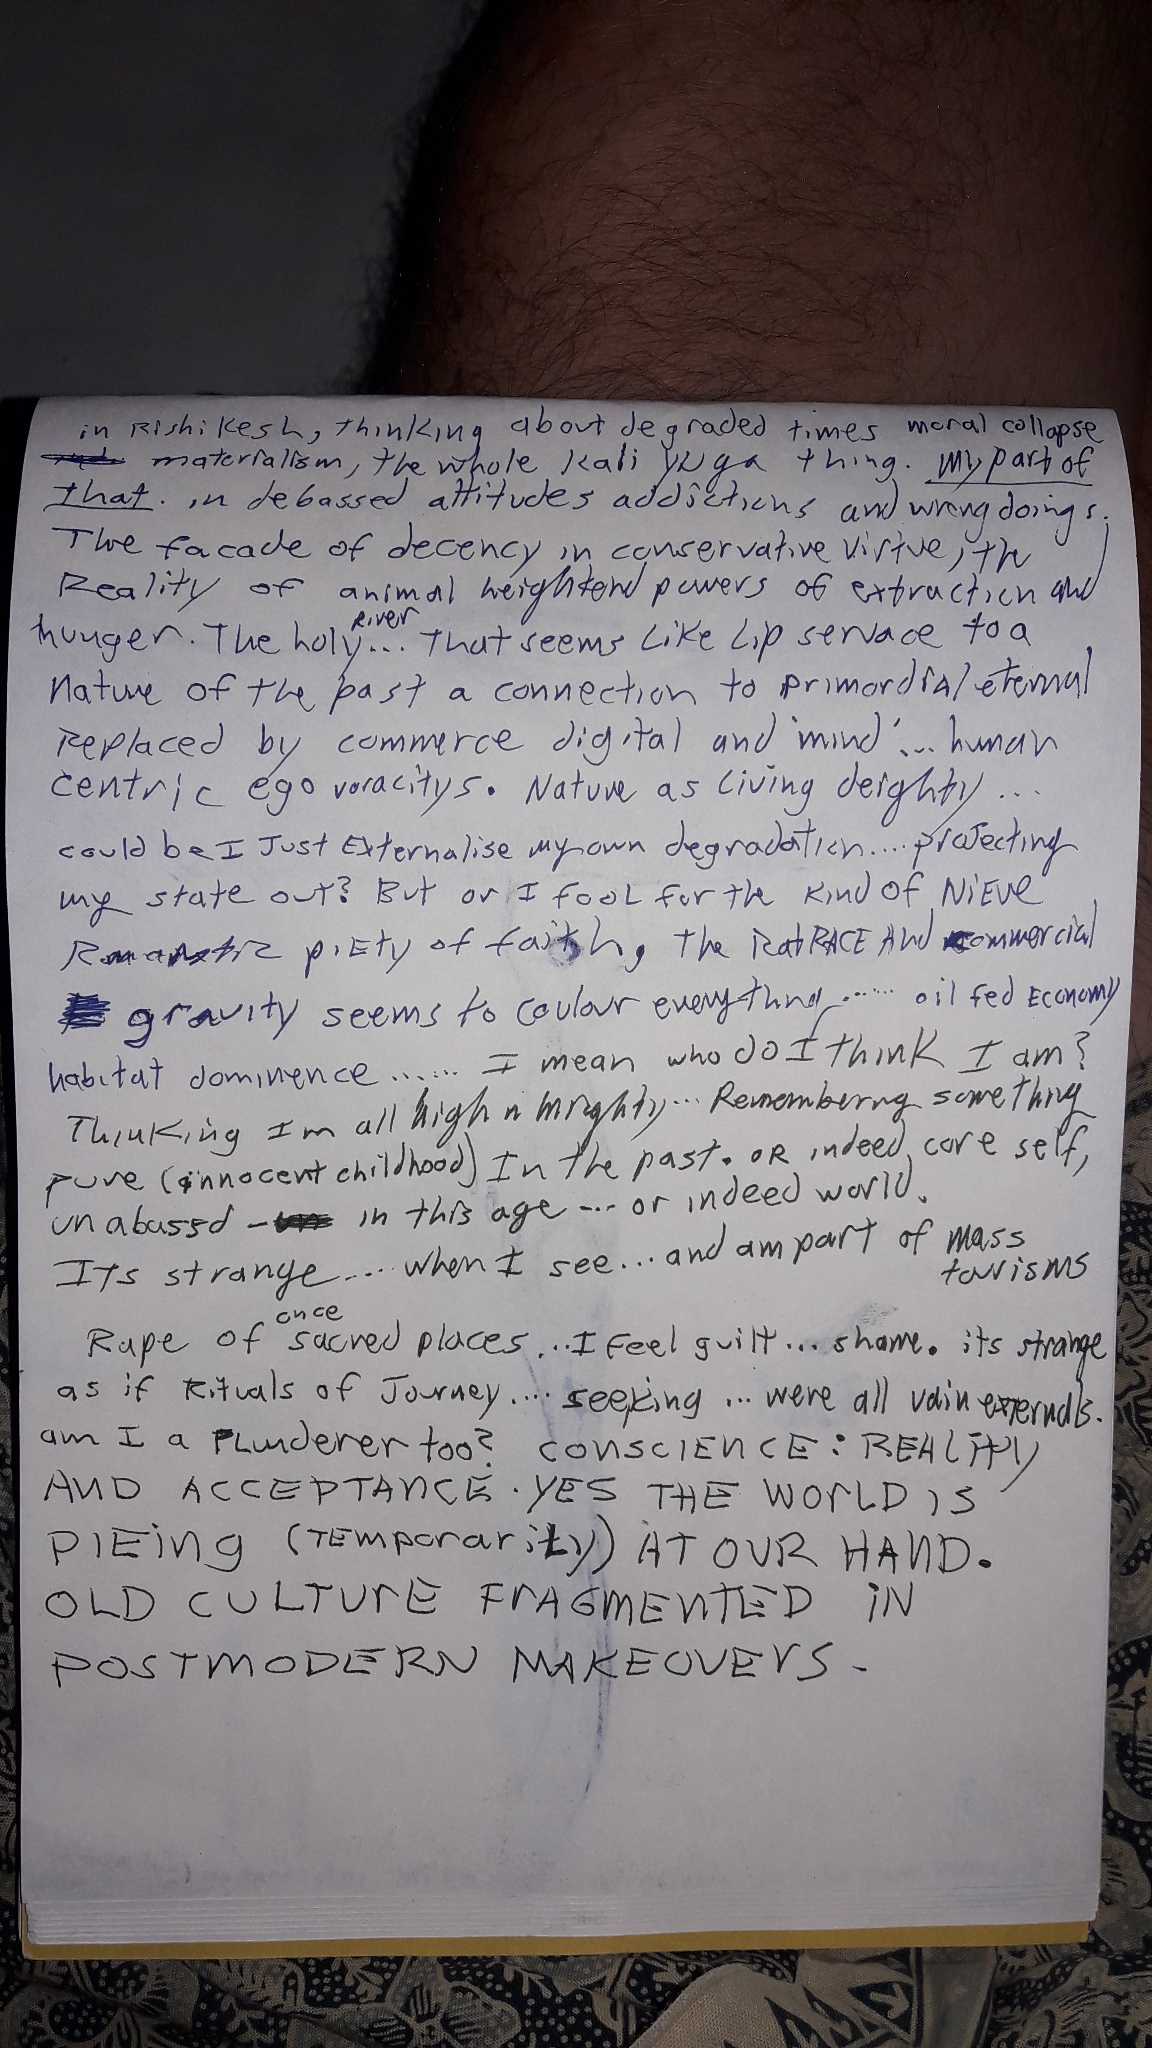 in Rishikesh, thinking about degraded times moral collapse
materialism, the whole Kali yuga thing. My part of
that. in debassed attitudes addictions and wrong doings.
The facade of decency in conservative virtue, the
Reality of animal heightend powers of extraction and
hunger. The holy River... That seems Like Lip servace to a
Nature of the past a connection to primordial eternal
Replaced by commerce digital and 'mind'... human
centric ego voracitys. Nature as living deighty...
could be I Just Externalise my own degradation.... projecting
my state out? But or I fool for the kind of NiEve
Romantic piety of faith, The RatRACE And commercial
gravity seems to coulour everything...... oil fed Economy
habitat dominence...... I mean who do I think I am?
Thinking Im all high n mighty... Remembering something
pure (innocent childhood) In the past. OR indeed core self,
unabassd - in this age --- or indeed world.
Its strange.... when I see... and am part of mass
tourisms
Rape of once sacred places...I Feel guilt... shame. its strange
as if Rituals of Journey.... seeking ... were all vain externals.
am I a PLunderer too? CONSCIENCE: REALITY
AND ACCEPTANCE. YES THE WORLD IS
DIEing (TEmporarily) AT OUR HAND.
OLD CULTURE FRAGMENTED iN
POSTMODERN MAKEOVERS.